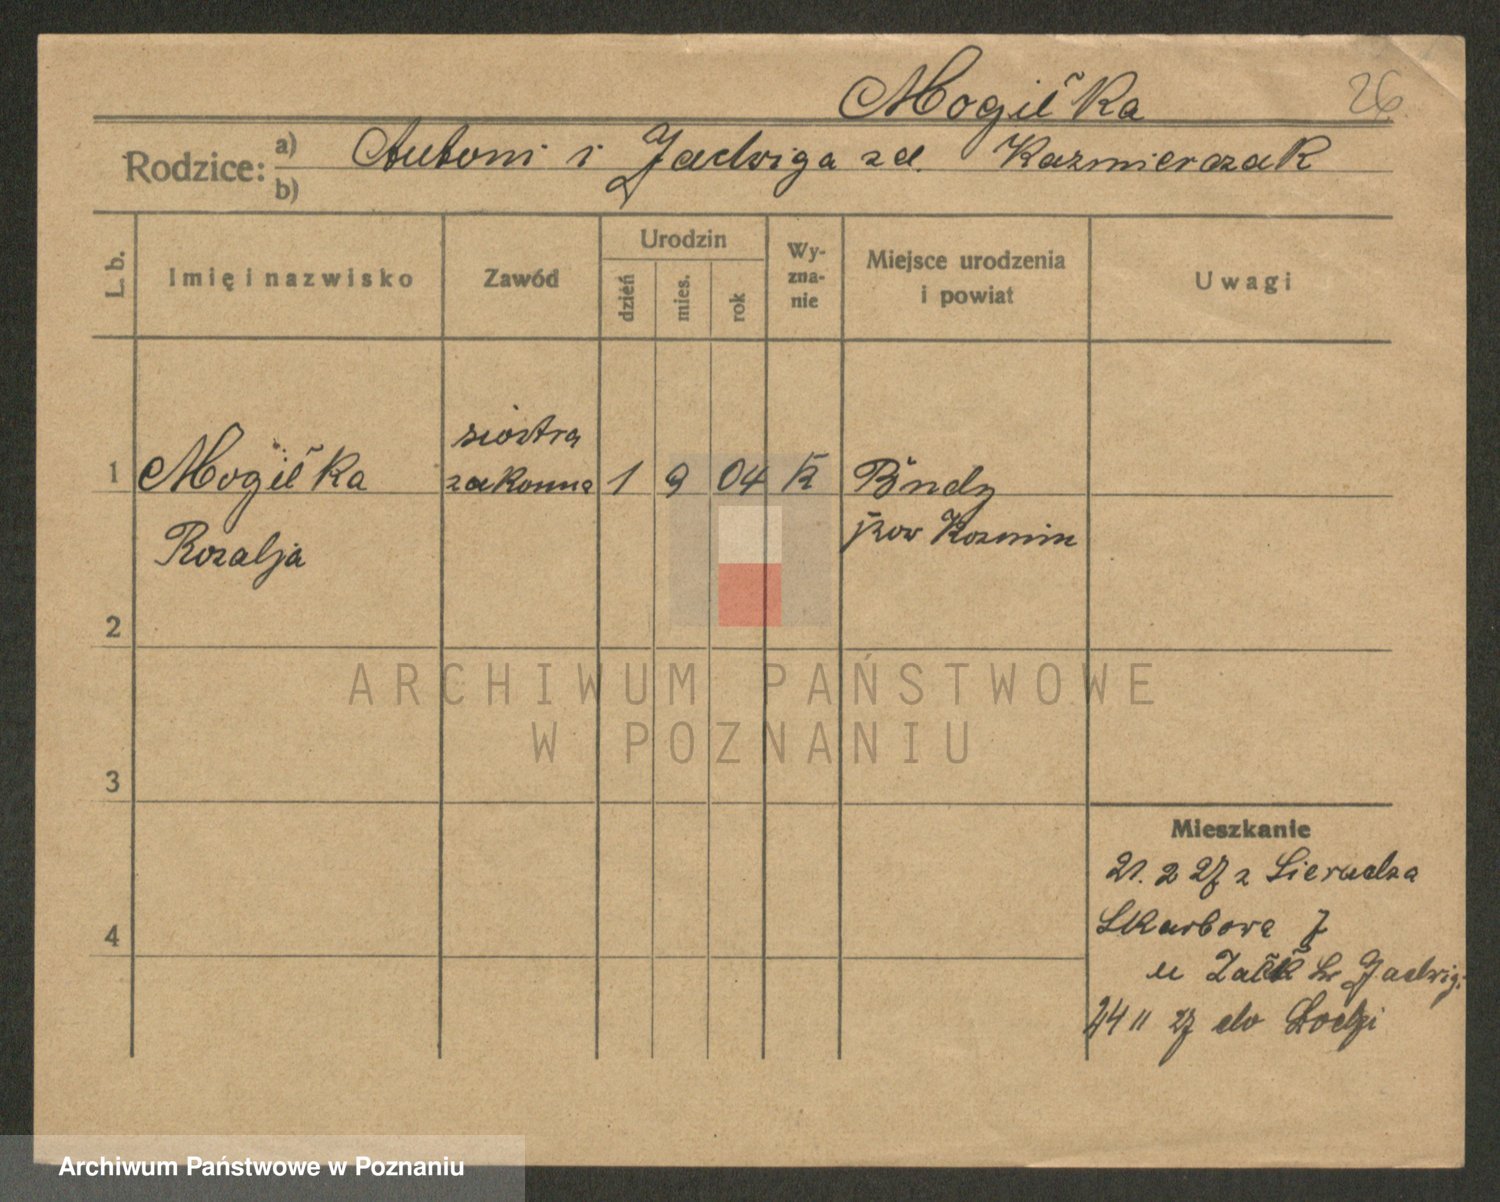 Mogiłka 26
Rodzice: a) Antoni i Jadwiga zd. Kaźmierczak
b)
L. b. Imię i nazwisko Zawód Urodzin dzień mies. rok Wyznanie Miejsce urodzenia i powiat Uwagi
siostra
1 Mogiłka zakonna 1 9 04 K
Rozalja pow Kozmin
2
3
Mieszkanie
21. 2 27 z Sieradza
Skarbowa 7
4
u Zakł Św Jadwigi
24 11 27 do Łodzi
ARCHIWUM PAŃSTWOWE
W POZNANIU
Archiwum Państwowe w Poznaniu